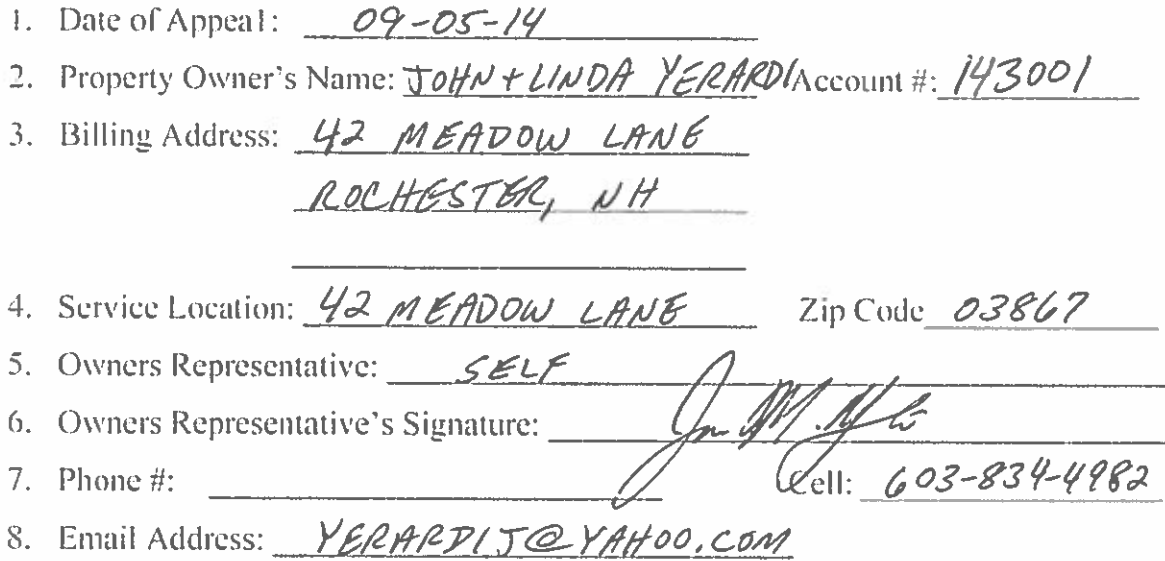 1. Date of Appeal: 09-05-14
2. Property Owner's Name: JOHN + LINDA YERARDI Account #: 143001
3. Billing Address: 42 MEADOW LANE
ROCHESTER, NH
4. Service Location: 42 MEADOW LANE Zip Code 03867
5. Owners Representative: SELF
6. Owners Representative's Signature:
7. Phone #: Cell: 603-834-4982
8. Email Address: YERARDIJ@YAHOO.COM